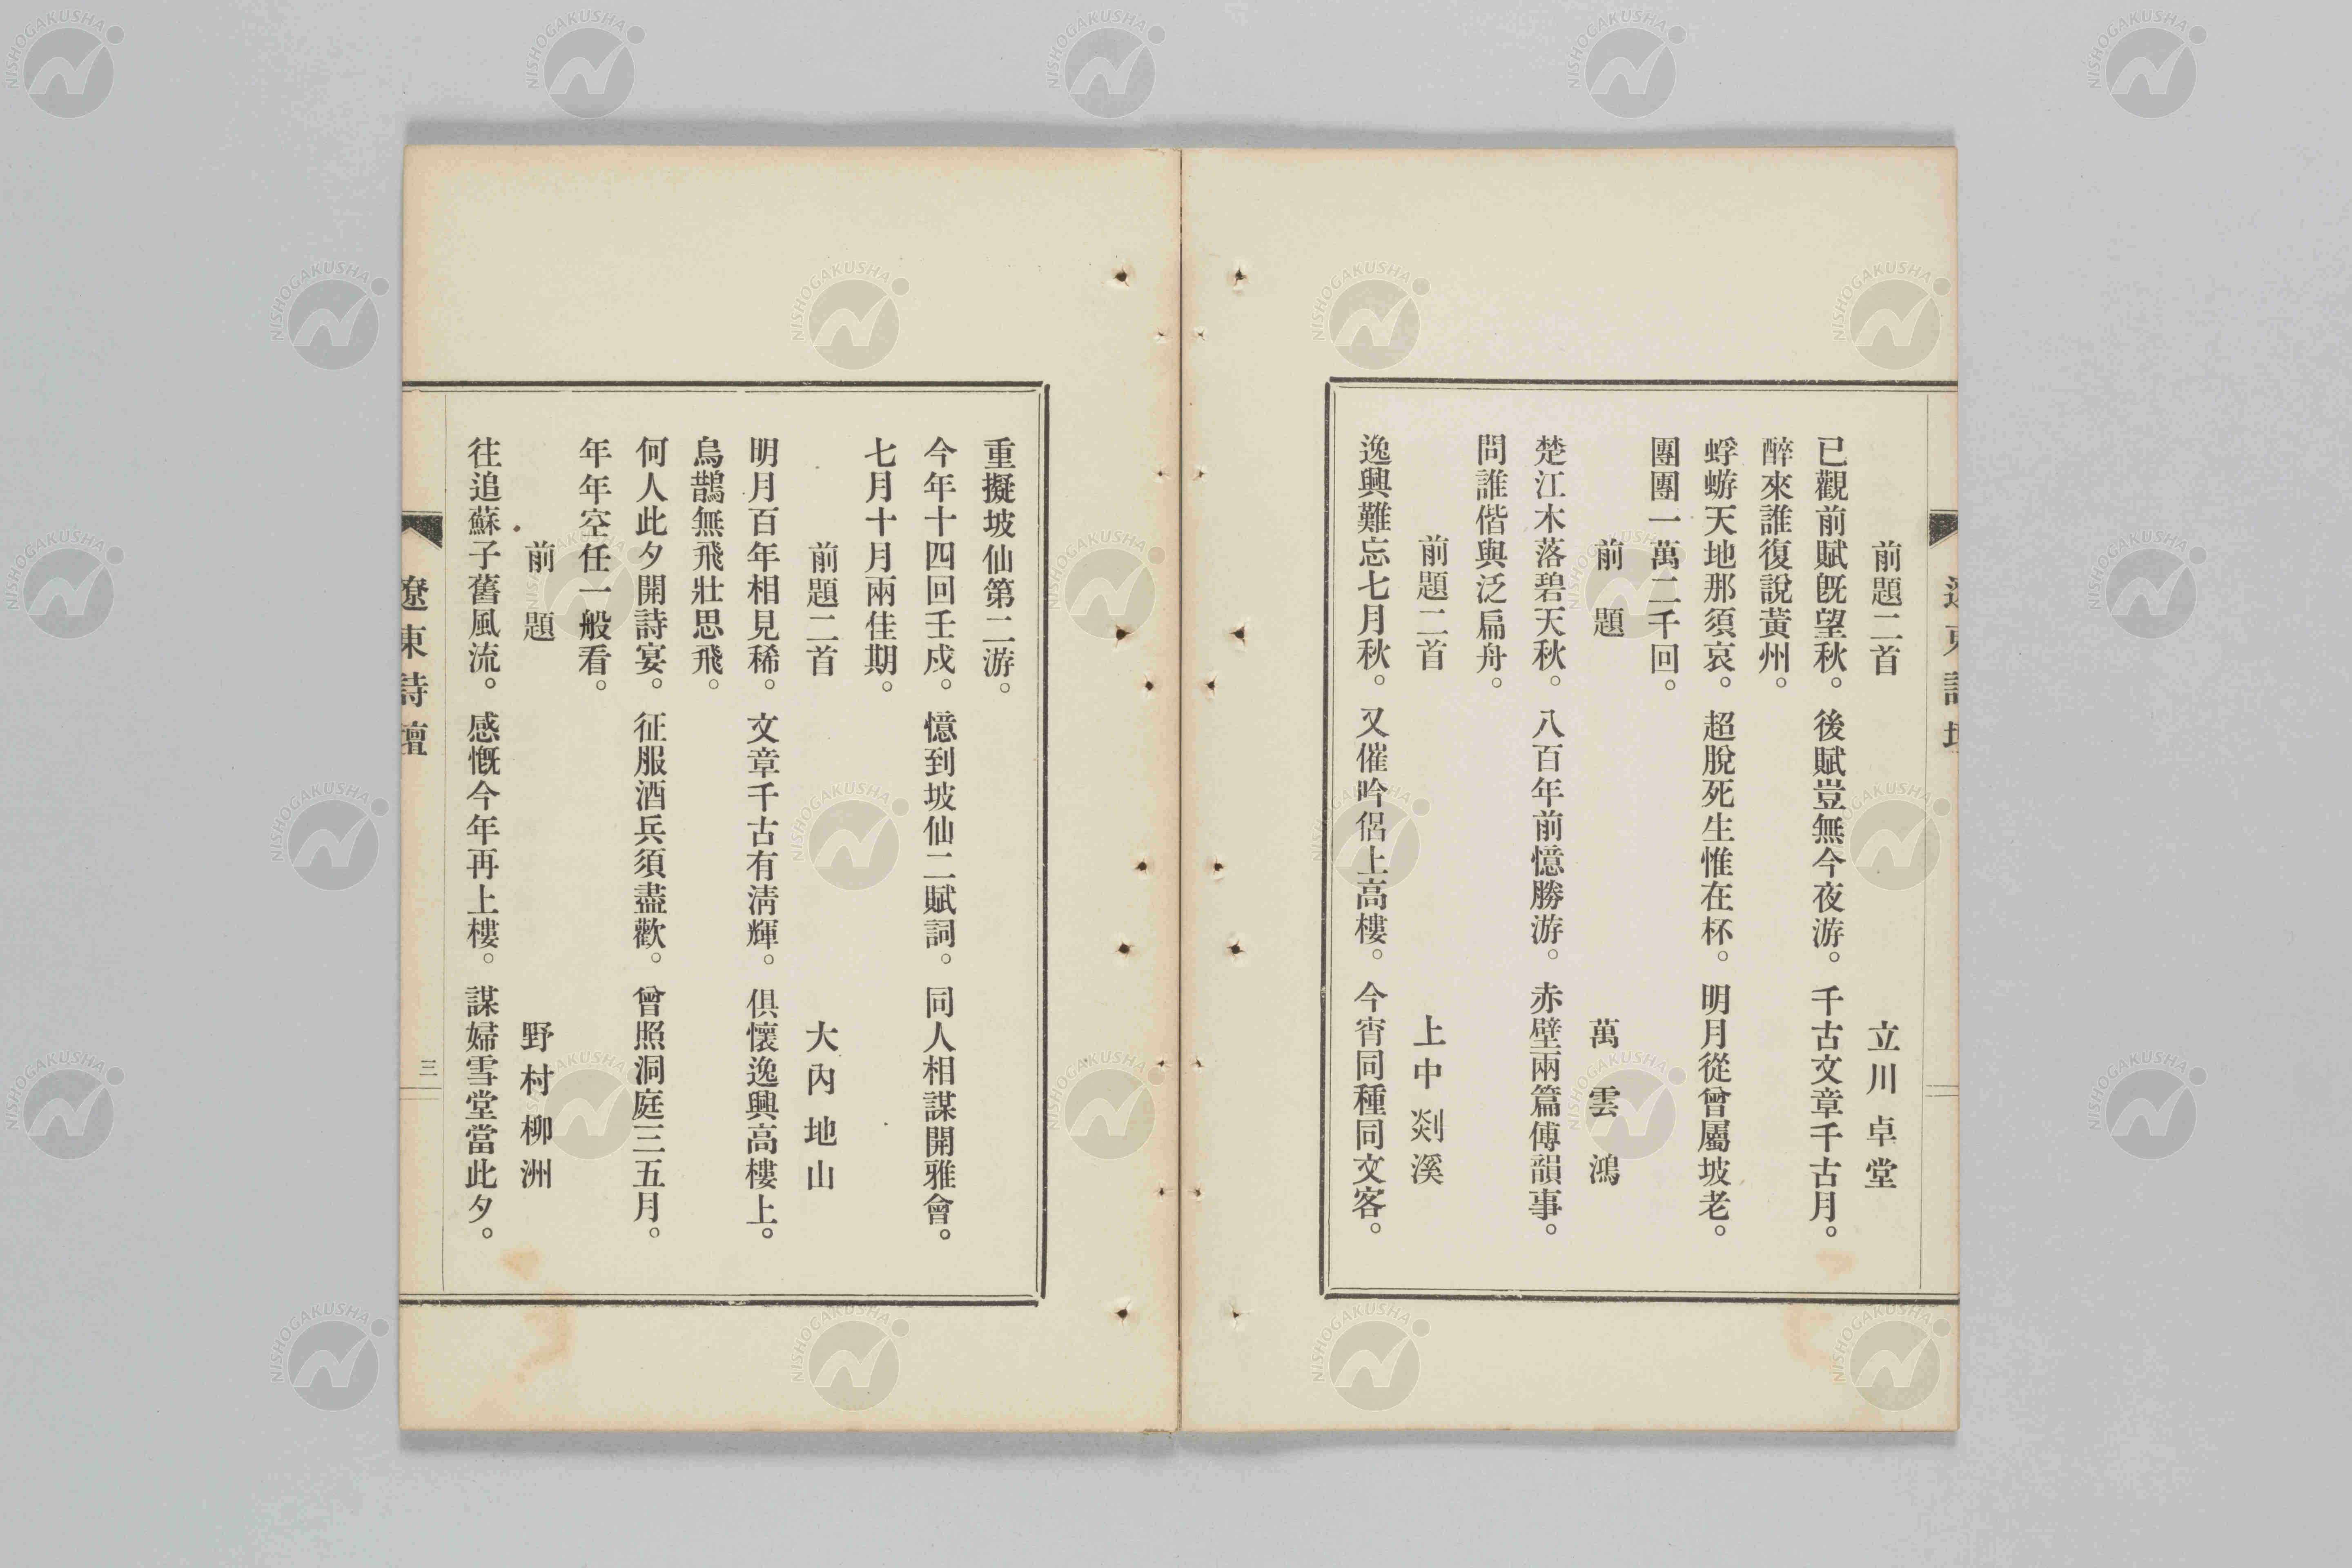 前題二首　立川卓堂
已觀前賦旣望秋。後賦豈無今夜游。千古文章千古月。
醉來誰復說黃州。
蜉蝣天地那須哀。超脫死生惟在杯。明月從曾屬坡老。
團團一萬二千回。
前題　萬雲鴻
楚江木落碧天秋。八百年前憶勝游。赤壁兩篇傳韻事。
問誰偕與泛扁舟。
前題二首　上中剡溪
逸興難忘七月秋。又催吟侶上高樓。今宵同種同文客。
重擬坡仙第二游。
今年十四回壬戍。憶到坡仙二賦詞。同人相謀開雅會。
七月十月兩佳期。
前題二首　大內地山
明月百年相見稀。文章千古有淸輝。俱懷逸興高樓上。
烏鵲無飛壯思飛。
何人此夕開詩宴。征服酒兵須盡歡。曾照洞庭三五月。
年年空任一般看。
前題　野村柳洲
往追蘇子舊風流。感慨今年再上樓。謀婦雪堂當此夕。
遼東詩壇
三
NISHOGAKUSHA